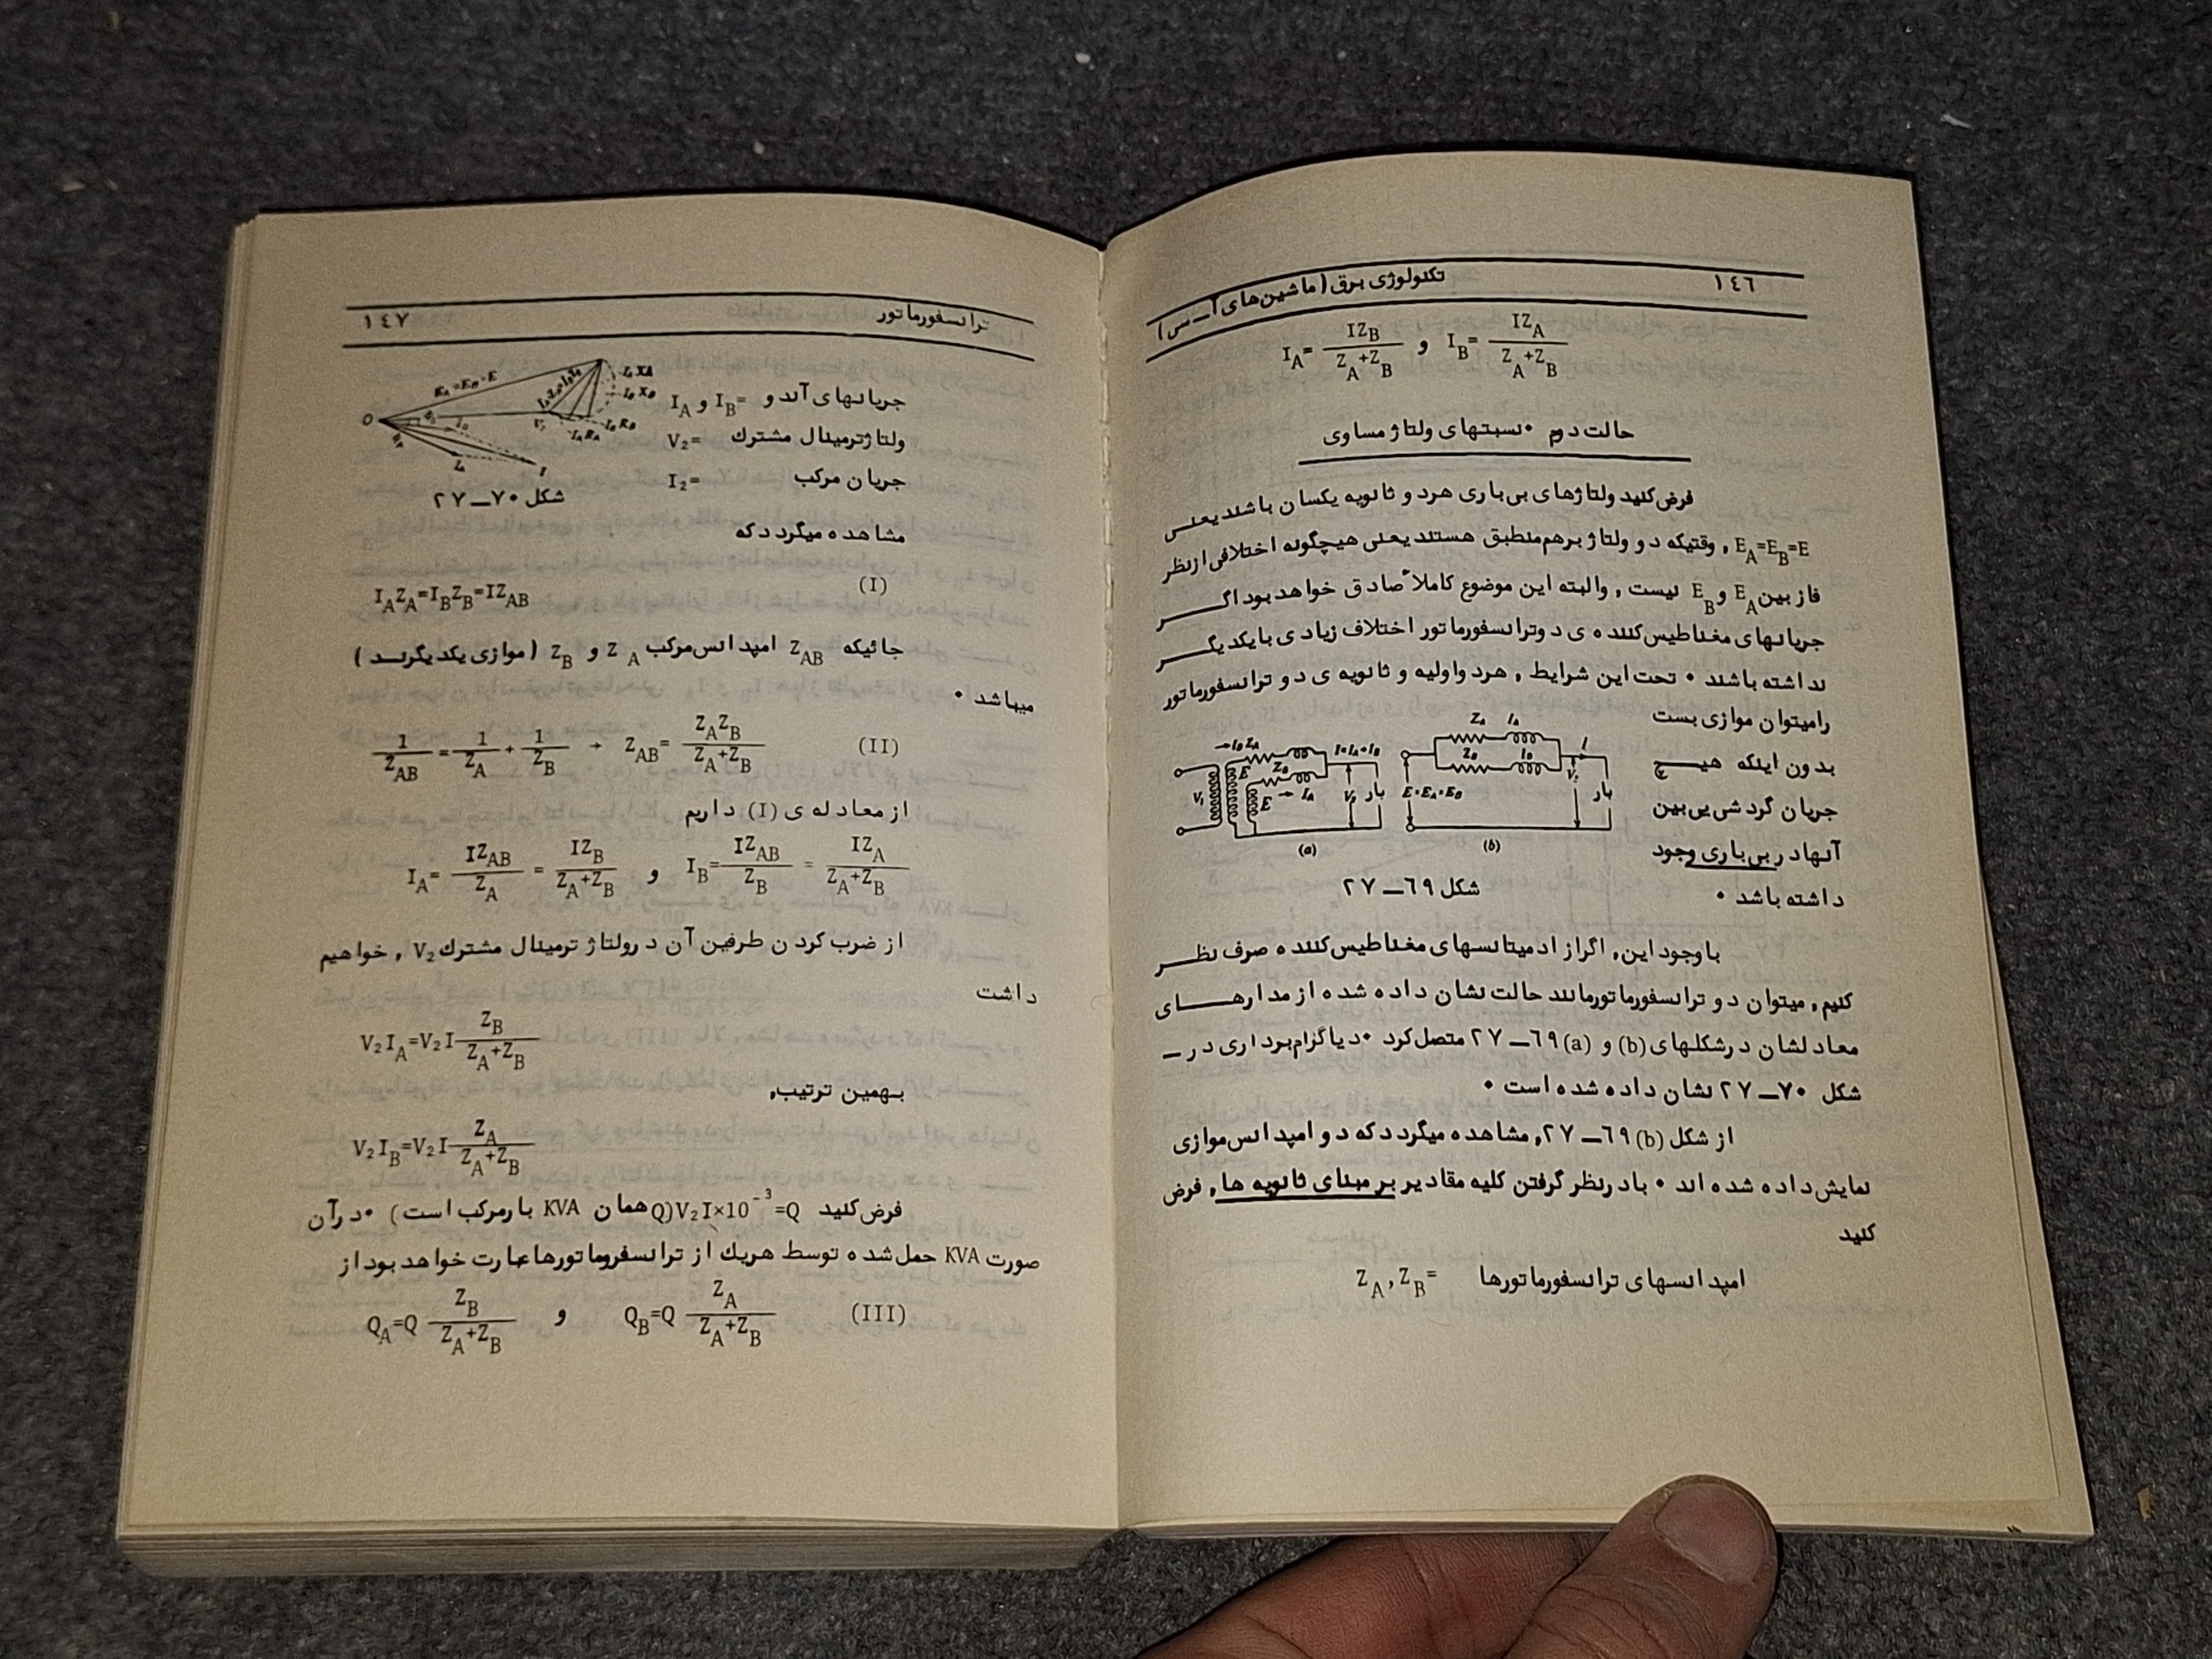 تکنولوژی برق (ماشین‌های آ ــ سی) ١٤٦
I_A = IZ_B / (Z_A+Z_B) و I_B = IZ_A / (Z_A+Z_B)
حالت دوم • نسبتهای ولتاژ مساوی
فرض کنید ولتاژهای بی‌باری هرد و ثانویه یکسان باشند یعنی
E_A=E_B=E , وقتیکه دو ولتاژ برهم منطبق هستند یعنی هیچگونه اختلافی از نظر
فاز بین E_A و E_B نیست , والبته این موضوع کاملاً صادق خواهد بود اگر
جریانهای مغناطیس‌کننده ی دو ترانسفورماتور اختلاف زیادی با یکدیگر
نداشته باشند • تحت این شرایط , هرد و اولیه و ثانویه ی دو ترانسفورماتور
رامیتوان موازی بست
بدون اینکه هیچ
جریان گردشی‌یی بین
آنهادربی‌باری وجود
داشته باشد •
V₁ → I_B Z_A E Z_B E → I_A I=I_A+I_B V₂ بار
(a)
Z_A I_A Z_B I_B I E=E_A=E_B V₂ بار
(b)
شکل ٦٩ــ٢٧
باوجود این, اگر از ادمیتانسهای مغناطیس‌کننده صرف نظر
کنیم, میتوان دو ترانسفورماتور مانند حالت نشان داده شده از مدارهای
معادلشان درشکلهای (b) و (a) ٦٩ــ٢٧ متصل کرد • دیاگرام برداری در ــ
شکل ٧٠ــ٢٧ نشان داده شده است •
از شکل (b) ٦٩ــ٢٧, مشاهده میگردد که دو امپدانس موازی
نمایش داده شده اند • بادرنظر گرفتن کلیه مقادیر بر مبنای ثانویه ها , فرض
کنید
Z_A , Z_B = امپدانسهای ترانسفورماتورها
ترانسفورماتور ١٤٧
O E_A=E_B=E I_A Z_A=I_B Z_B I_A X_A I_B X_B V₂ I_A R_A I_B R_B I_B I_A I
شکل ٧٠ــ٢٧
I_A و I_B = جریانهای آندو
V₂= ولتاژترمینال مشترك
I₂= جریان مرکب
مشاهده میگردد که
I_A Z_A=I_B Z_B=IZ_AB (I)
جائیکه Z_AB امپدانس مرکب Z_A و Z_B (موازی یکدیگرند)
میباشد •
1/Z_AB = 1/Z_A + 1/Z_B → Z_AB = Z_A Z_B / (Z_A+Z_B) (II)
از معادله ی (I) داریم
I_A = IZ_AB / Z_A = IZ_B / (Z_A+Z_B) و I_B = IZ_AB / Z_B = IZ_A / (Z_A+Z_B)
از ضرب کردن طرفین آن درولتاژ ترمینال مشترك V₂ , خواهیم
داشت
V₂I_A=V₂I Z_B / (Z_A+Z_B)
بهمین ترتیب,
V₂I_B=V₂I Z_A / (Z_A+Z_B)
فرض کنید V₂I×10⁻³=Q (Q همان KVA بارمرکب است) • درآن
صورت KVA حمل شده توسط هریك از ترانسفروماتورها عبارت خواهد بود از
Q_A=Q Z_B / (Z_A+Z_B) و Q_B=Q Z_A / (Z_A+Z_B) (III)